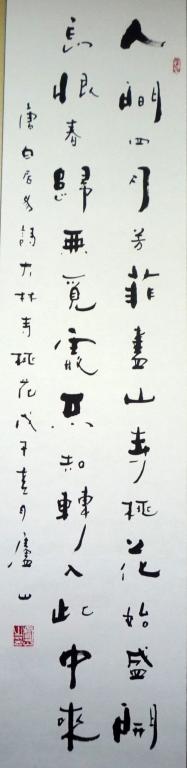 人間四月芳菲盡山寺桃花始盛開
長恨春歸無覓處不知轉入此中來
唐白居易詩大林寺桃花戊子春月廬山